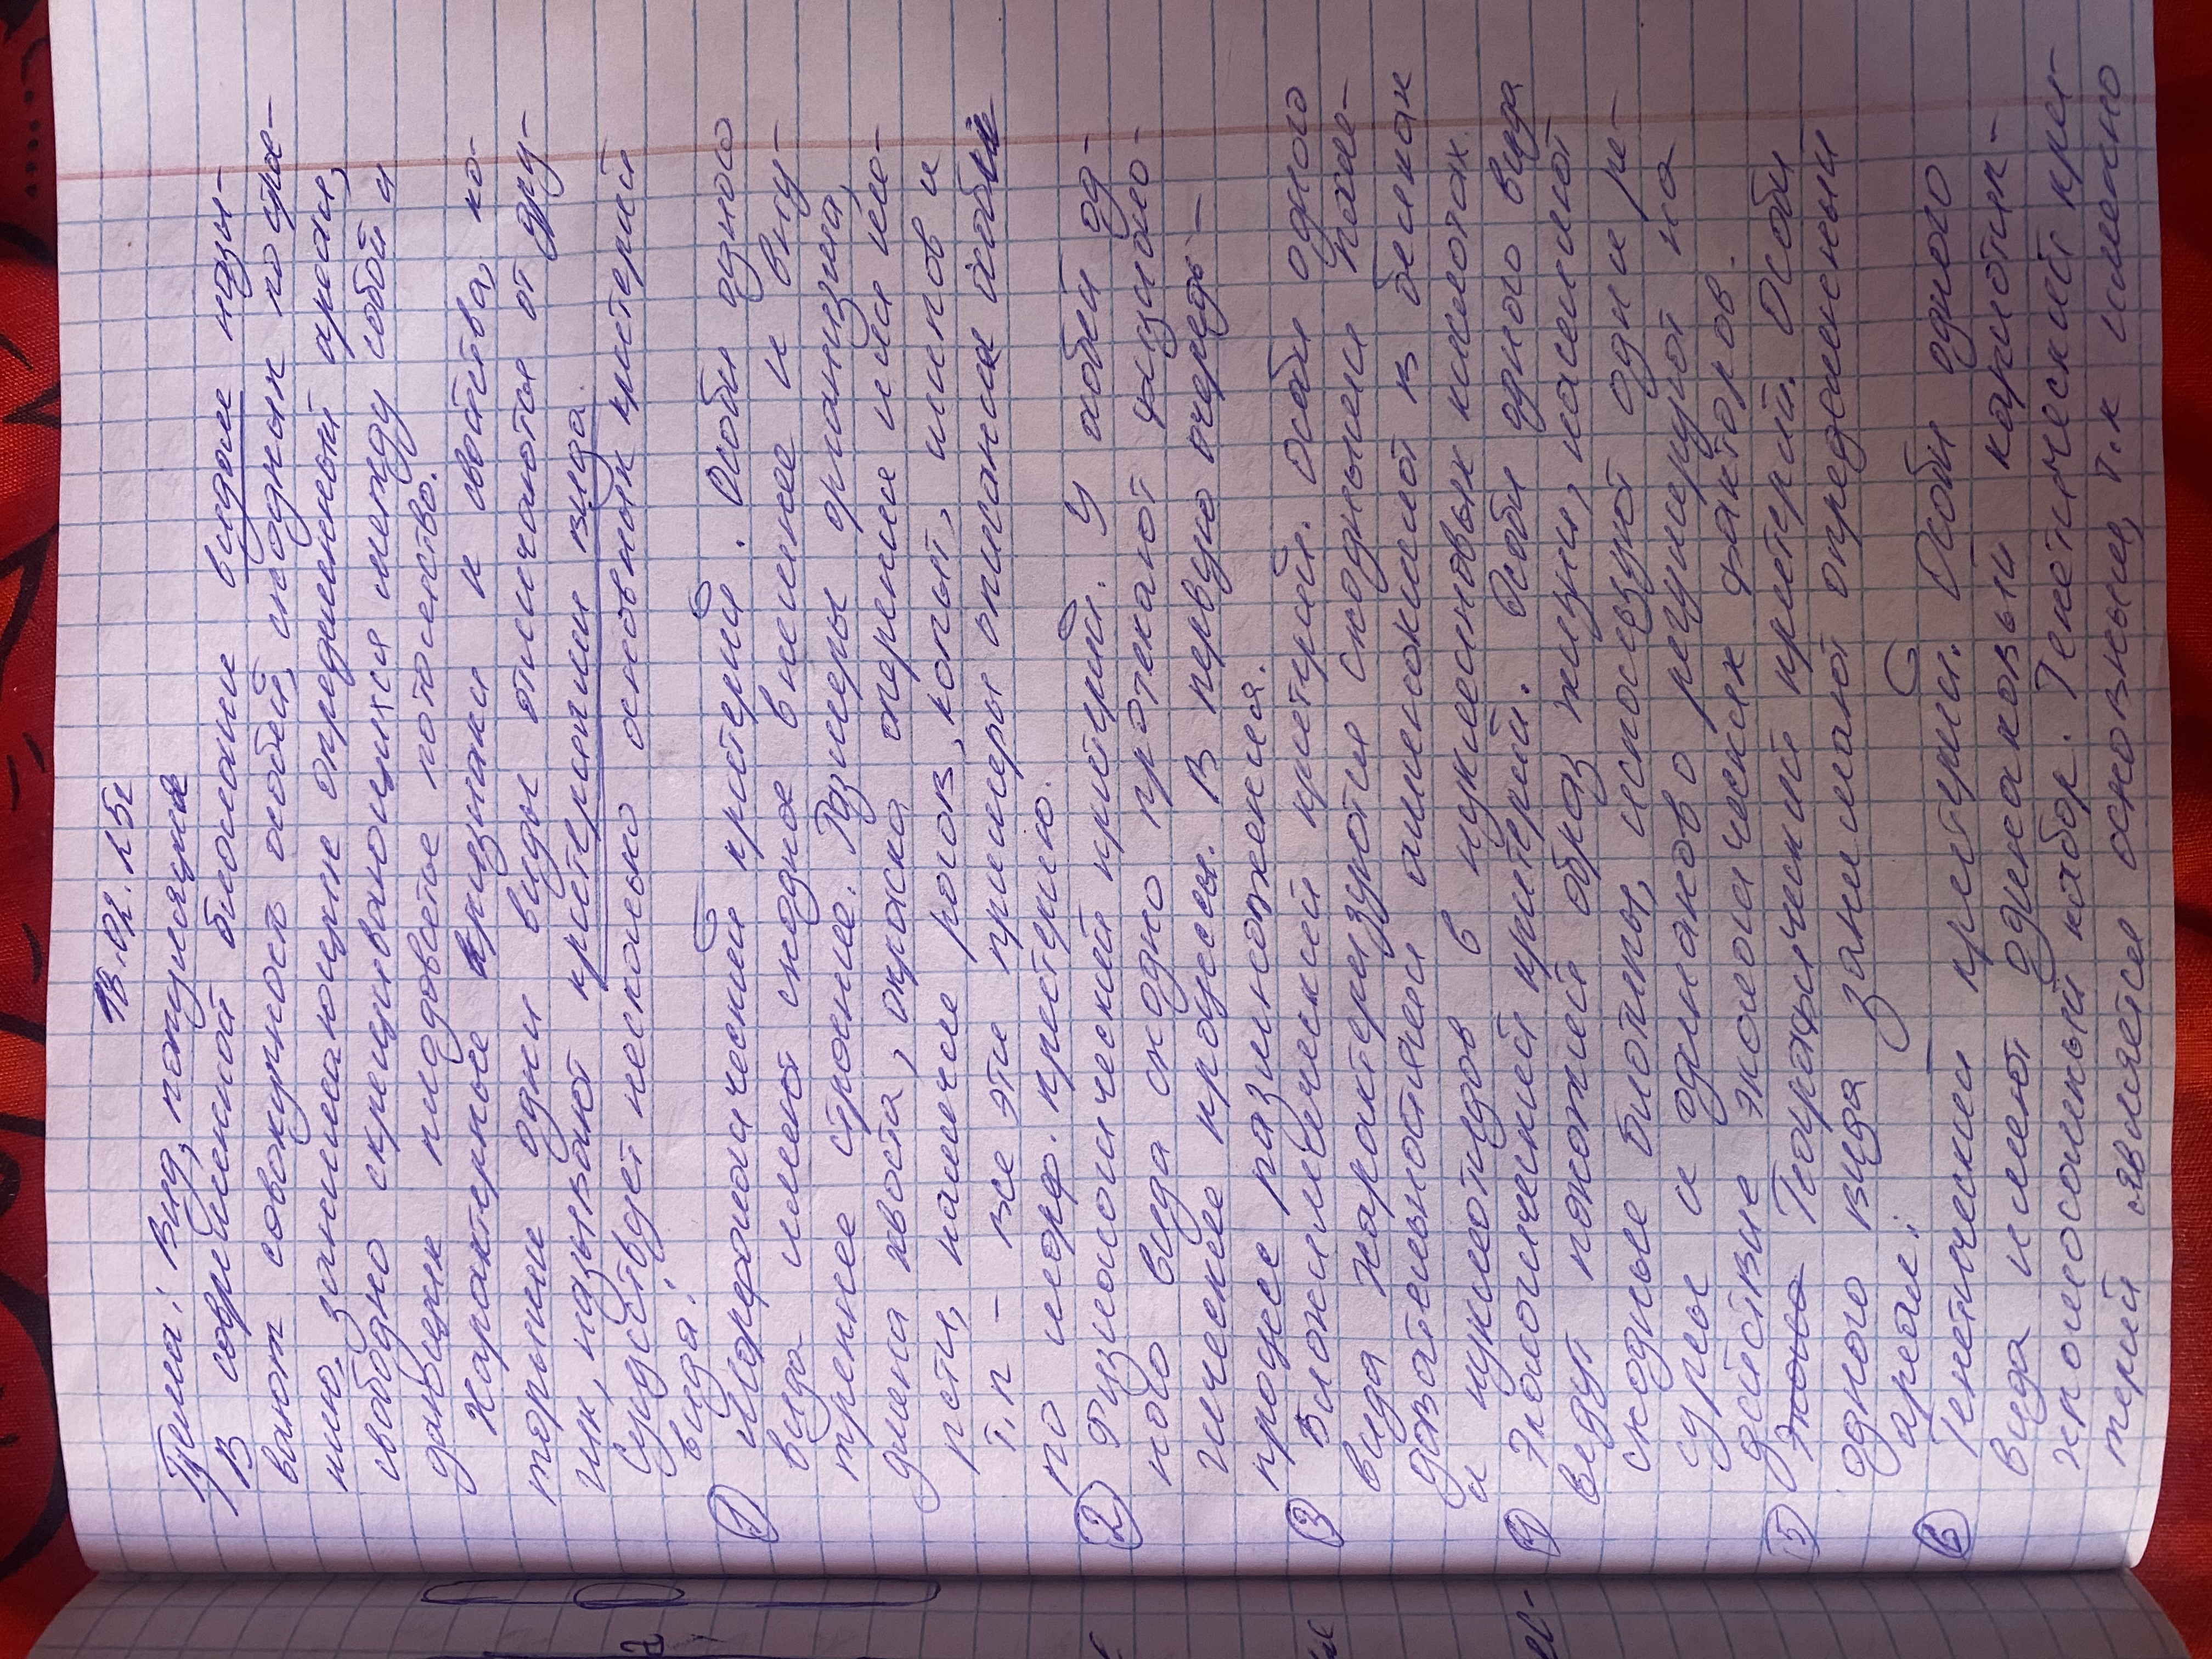 18.02.25г
Тема: Вид, популяция
В современной биологии видом назы-
вают совокупность особей, сходных по стро-
нию, занимающие определенный ареал,
свободно скрещивающихся между собой и
дающих плодовитое потомство.
Характерные признаки и свойства, ко-
торыми одни виды отличаются от дру-
гих, называют критериями вида.
Существует несколько основных критерий
вида:
① Морфологический критерий. Особи одного
вида имеют сходное внешнее и внут-
треннее строение. Размеры организма,
длина хвоста, окраска оперение или ше-
рсти, наличие рогов, копыт, шипов и
т.п - все эти примеры описания особи
по морф. критерию.
② Физиологический критерий. У особей од-
ного вида сходно протекают физиоло-
гические процессы. В первую очередь -
процесс размножения.
③ Биохимический критерий. Особи одного
вида характеризуются сходными после-
довательностями аминокислот в белках
и нуклеотидов в нуклеиновых кислотах.
④ Экологический критерий. Особи одного вида
ведут похожий образ жизни, населяют
сходные биотопы, используют одни ре-
сурсы и одинаково реагируют на
действие экологических факторов.
⑤ Географический критерий. Особи
одного вида занимают определенный
ареал.
⑥ Генетический критерий. Особи одного
вида имеют одинаковый кариотип -
хромосомный набор. Генетический кри-
терий является основным, т.к именно